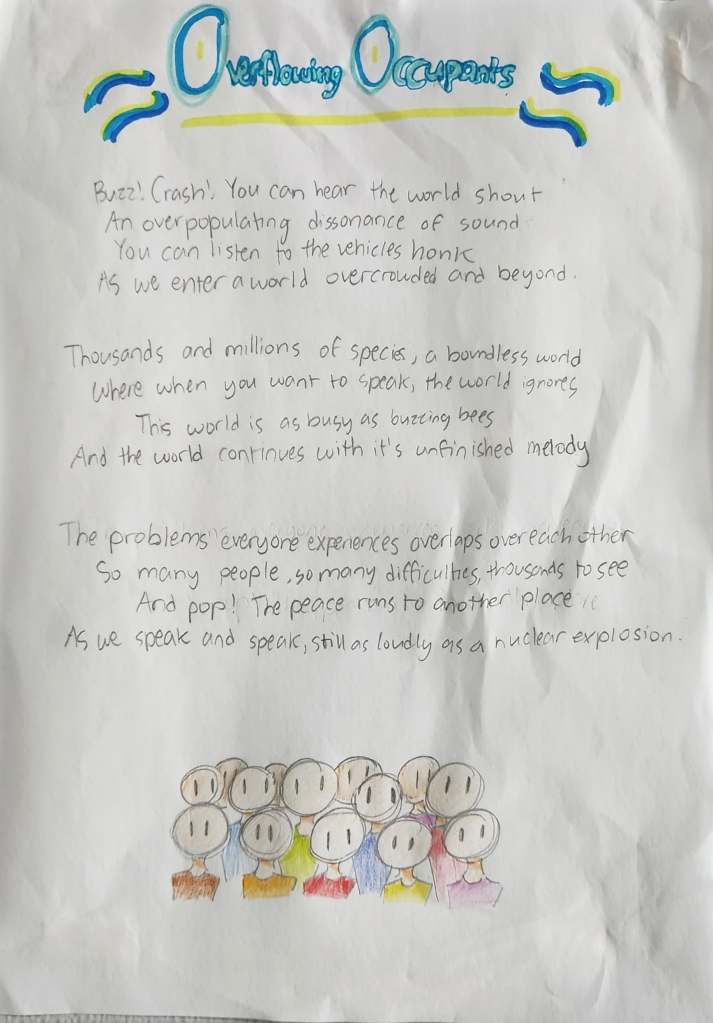 Overflowing Occupants
Buzz! Crash! You can hear the world shout
An overpopulating dissonance of sound
You can listen to the vehicles honk
As we enter a world overcrowded and beyond.
Thousands and millions of species, a boundless world
Where when you want to speak, the world ignores
This world is as busy as buzzing bees
And the world continues with it's unfinished melody
The problems everyone experiences overlaps over each other
So many people, so many difficulties, thousands to see
And pop! The peace runs to another place
As we speak and speak, still as loudly as a nuclear explosion.